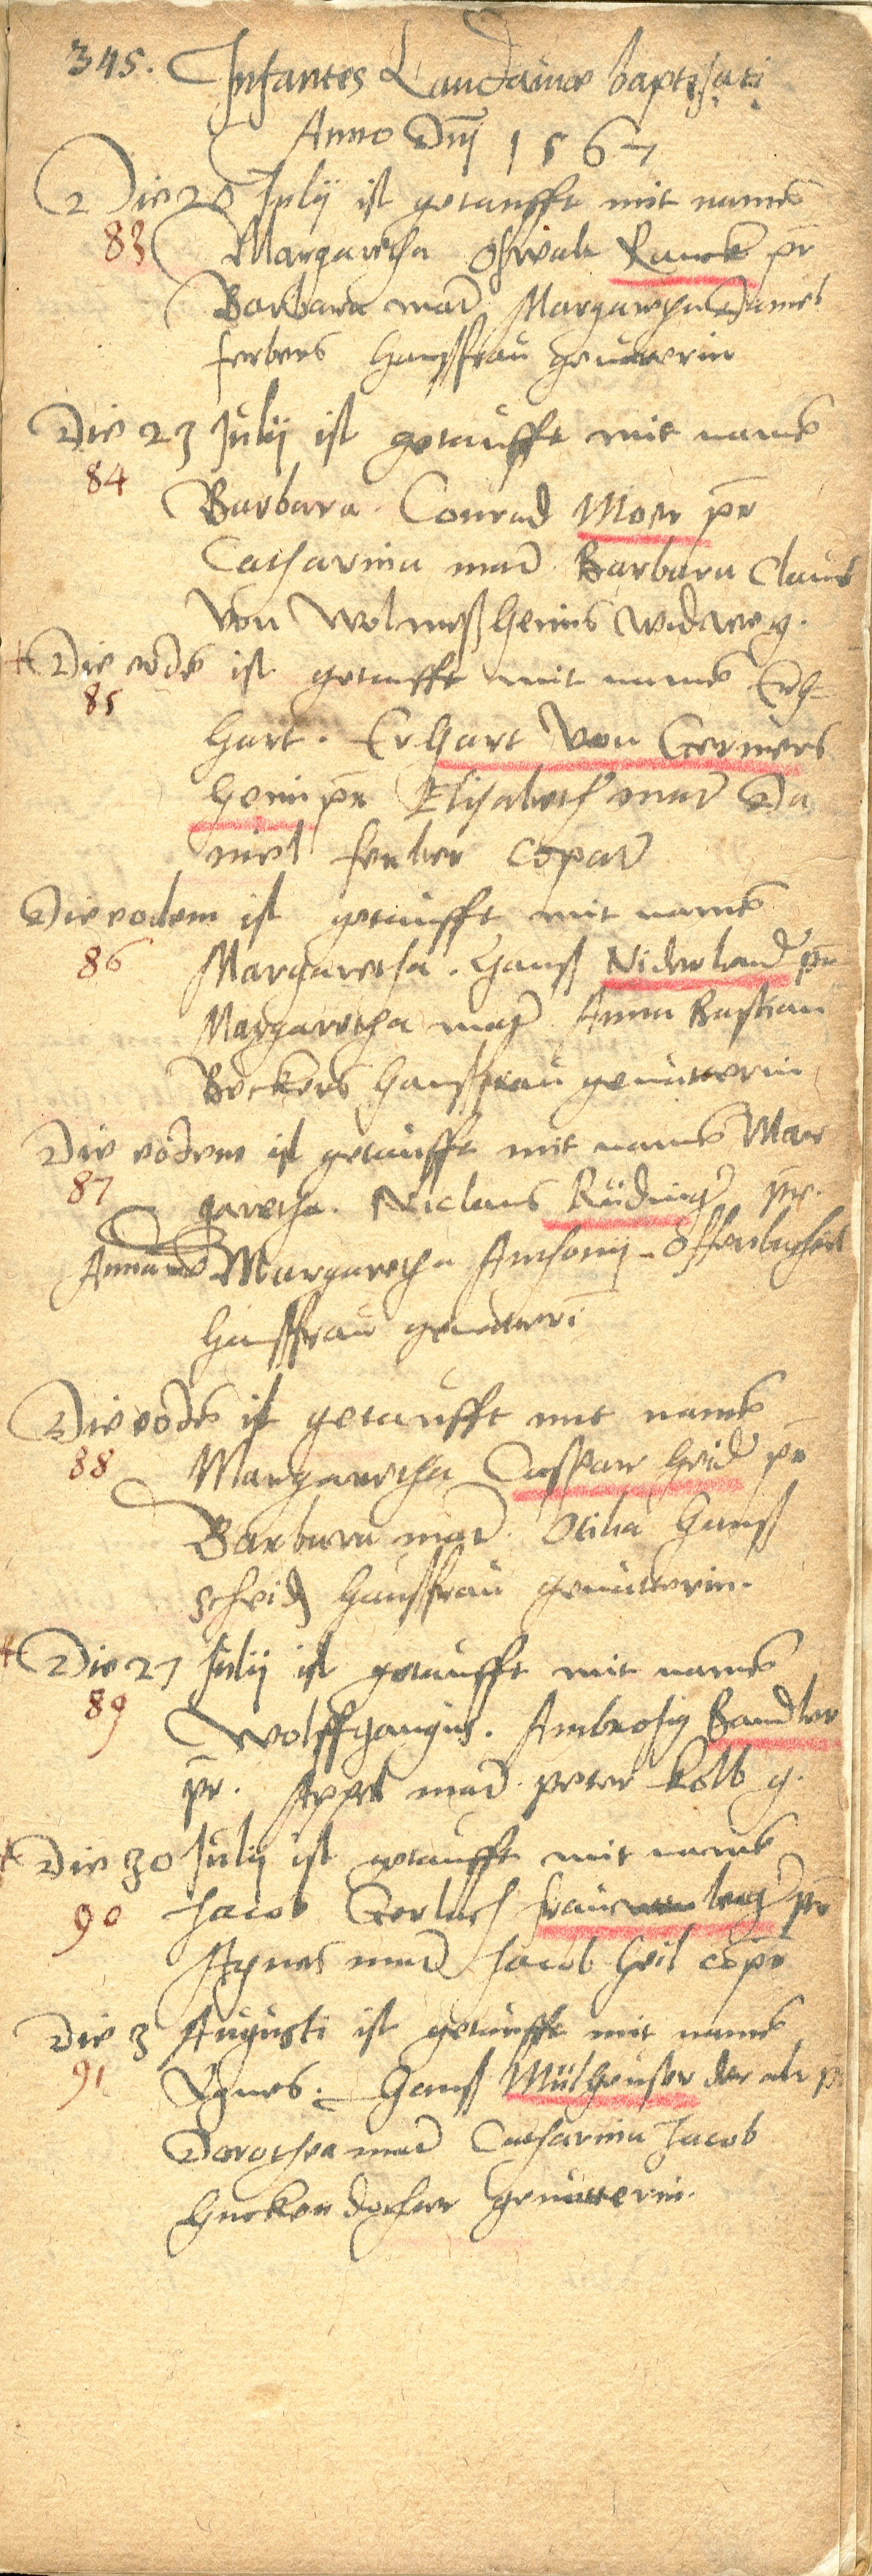 345. Infantes Landauiæ baptisati
Anno Dni 1567
Die 20 Julij ist getaufft mit name
83 Margaretha Oswalt Ranck pr
Barbara mad. Margaretha Daniel
ferbers haussfrau gevatterin
Die 23 Julij ist getaufft mit name
84
Barbara. Conrad Moser pr
Catharina mad. Barbara Claus
von Wolmeßheims widwe g.
Die eode ist getaufft mit name Er
85
hart. Erhart von Germers
heim pr Elisabeth mad Da
niel ferber copar
Die eodem ist getaufft mit name
86 Margaretha. Hanß Niderland pr
Margaretha mad. Anna Bastian
Beckers haußfrau gevatterin
Die eodem ist getaufft mit name Mar
87 garetha. Niclaus Rüdinger pr.
Anna mad Margaretha Anthonij
haussfrau gevatteri
Die eode ist getaufft mit name
88 Margaretha Caspar Heid pr
Barbara mad. Otilia Hanß
scheid haussfrau gevatterin.
Die 27 Julij ist getaufft mit name
89 Wolffgangus. Ambrosig Bandler
pr. Appel mad. peter Kolb g.
Die 30 Julij ist getaufft mit name
90 Jacob Gerlach pr
Agnes mad Jacob Heil copr
Die 3 Augusti ist getaufft mit name
91 Agnes. Hanß Mülheuser der alt p
Dorothea mad Catharina Jacob
gevatterin.